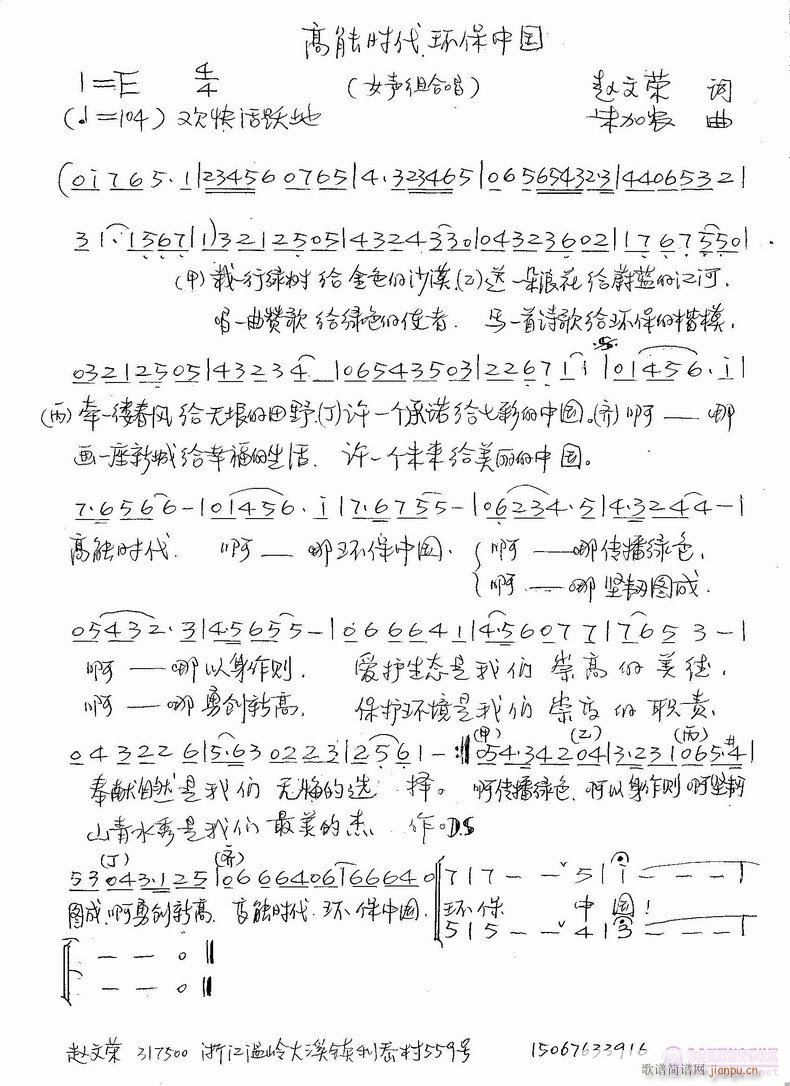 高能时代,环保中国
1=E 4/4 (女声组合唱) 赵文荣 词
(♩=104) 欢快活跃地 朱加农 曲
(0i765·1|234560765|4·323465|065654323|44065321
31·1567|1)3212505|4324330|04323602|1767550|
(甲)栽一行绿树给金色的沙漠,(乙)送一朵浪花给蔚蓝的江河,
唱一曲赞歌给绿色的使者. 写一首诗歌给环保的楷模,
03212505|43234_|06543503|22671i|01456·i|
(丙)牵一缕春风给无垠的田野,(丁)许一个承诺给七彩的中国。(齐)啊——哪
画一座新城给幸福的生活. 许一个未来给美丽的中国。
7·6566-|01456·i|7·6755-|06234·5|4·3244-|
高能时代. 啊——哪环保中国. 啊——哪传播绿色,
啊——哪坚韧图成.
05432·3|4·5655-|066641|4·56077|7653-|
啊——哪以身作则, 爱护生态是我们崇高的美德,
啊——哪勇创新高, 保护环境是我们崇高的职责,
(甲) (乙) (丙)
043226|5·630223|2561-:‖054·34204|3·231065·#4|
奉献自然是我们无悔的选择。 啊传播绿色,啊以身作则啊坚韧
山青水秀是我们最美的杰作。DS
(丁) (齐)
53043·125|0666406|666640|717--ˇ5|i---|
图成,啊勇创新高,高能时代,环保中国,环保 中国!
515--ˇ4|3---|
--0‖
--0‖
赵文荣 317500 浙江温岭大溪镇利岙村559号 15067633916
歌谱简谱网
jianpu.cn